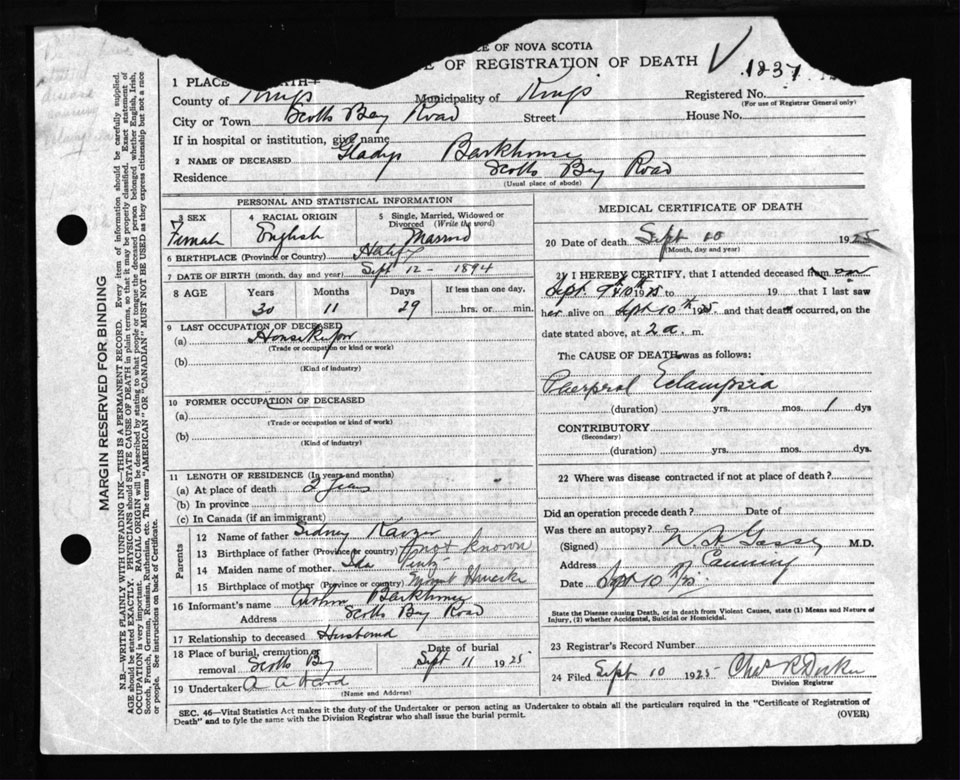 CE OF NOVA SCOTIA
E OF REGISTRATION OF DEATH
1237
1 PLACE
County of Kings Municipality of Kings Registered No.
(For use of Registrar General only)
City or Town Scotts Bay Road Street House No.
If in hospital or institution, give name
2 NAME OF DECEASED Gladys Barkhouse
Residence Scotts Bay Road
(Usual place of abode)
PERSONAL AND STATISTICAL INFORMATION
3 SEX Female
4 RACIAL ORIGIN English
5 Single, Married, Widowed or Divorced (Write the word) Married
6 BIRTHPLACE (Province or Country)
7 DATE OF BIRTH (month, day and year) Sept 12 - 1894
8 AGE Years 30 Months 11 Days 29 If less than one day, hrs. or min.
9 LAST OCCUPATION OF DECEASED
(a) Housekeeper
(Trade or occupation or kind or work)
(b)
(Kind of industry)
10 FORMER OCCUPATION OF DECEASED
(a)
(Trade or occupation or kind of work)
(b)
(Kind of industry)
11 LENGTH OF RESIDENCE (In years and months)
(a) At place of death
(b) In province
(c) In Canada (if an immigrant)
Parents
12 Name of father Sidney
13 Birthplace of father (Province or country) not known
14 Maiden name of mother Ida
15 Birthplace of mother (Province or country)
16 Informant's name Barkhouse
Address Scotts Bay Road
17 Relationship to deceased Husband
18 Place of burial, cremation or removal Scotts Bay Date of burial Sept 11 1925
19 Undertaker
(Name and Address)
MEDICAL CERTIFICATE OF DEATH
20 Date of death Sept 10 1925
(Month, day and year)
21 I HEREBY CERTIFY, that I attended deceased from on
Sept 9th 10th 1925 to 19 that I last saw
her alive on Sept 10th 1925. and that death occurred, on the
date stated above, at 2 a. m.
The CAUSE OF DEATH was as follows:
Eclampsia
(duration) yrs. mos. 1 dys
CONTRIBUTORY
(Secondary)
(duration) yrs. mos. dys
22 Where was disease contracted if not at place of death?
Did an operation precede death?
Was there an autopsy?
(Signed) M.D.
Address Canning
Date Sept 10th/25
State the Disease causing Death, or in death from Violent Causes, state (1) Means and Nature of
Injury, (2) whether Accidental, Suicidal or Homicidal.
23 Registrar's Record Number
24 Filed Sept 10 1925 Chas R
Division Registrar
SEC. 46—Vital Statistics Act makes it the duty of the Undertaker or person acting as Undertaker to obtain all the particulars required in the "Certificate of Registration of
Death" and to fyle the same with the Division Registrar who shall issue the burial permit. (OVER)
MARGIN RESERVED FOR BINDING
N.B.—WRITE PLAINLY WITH UNFADING INK—THIS IS A PERMANENT RECORD. Every item of information should be carefully supplied.
AGE should be stated EXACTLY. PHYSICIANS should STATE CAUSE OF DEATH in plain terms, so that it may be properly classified. Exact statement of
OCCUPATION is very important. RACIAL ORIGIN will be described by stating to what people or tongue the deceased person belonged whether English, Irish,
Scotch, French, German, Russian, Ruthenian, etc. The terms "AMERICAN" OR "CANADIAN" MUST NOT BE USED as they express citizenship but not a race
or people. See instructions on back of Certificate.